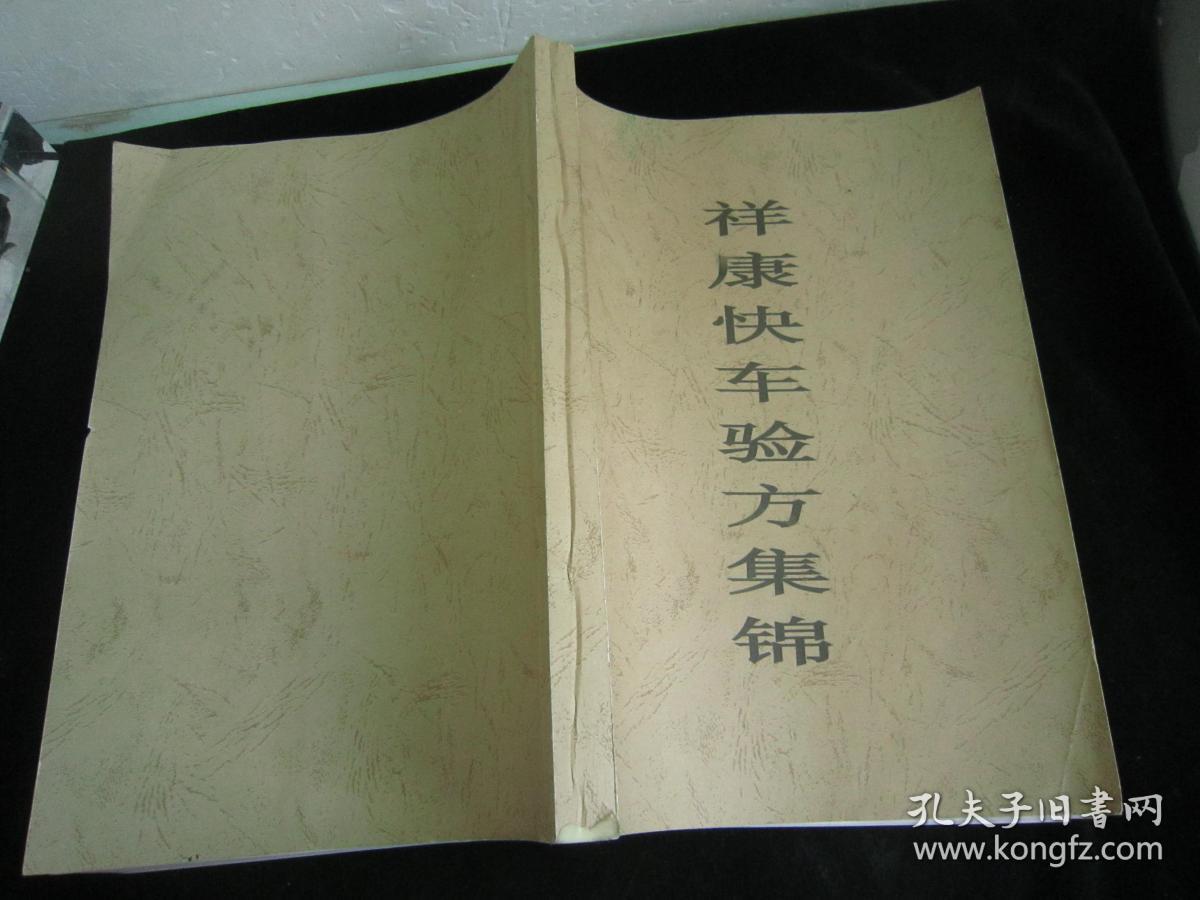 祥康快车验方集锦
孔夫子旧書网
www.kongfz.com